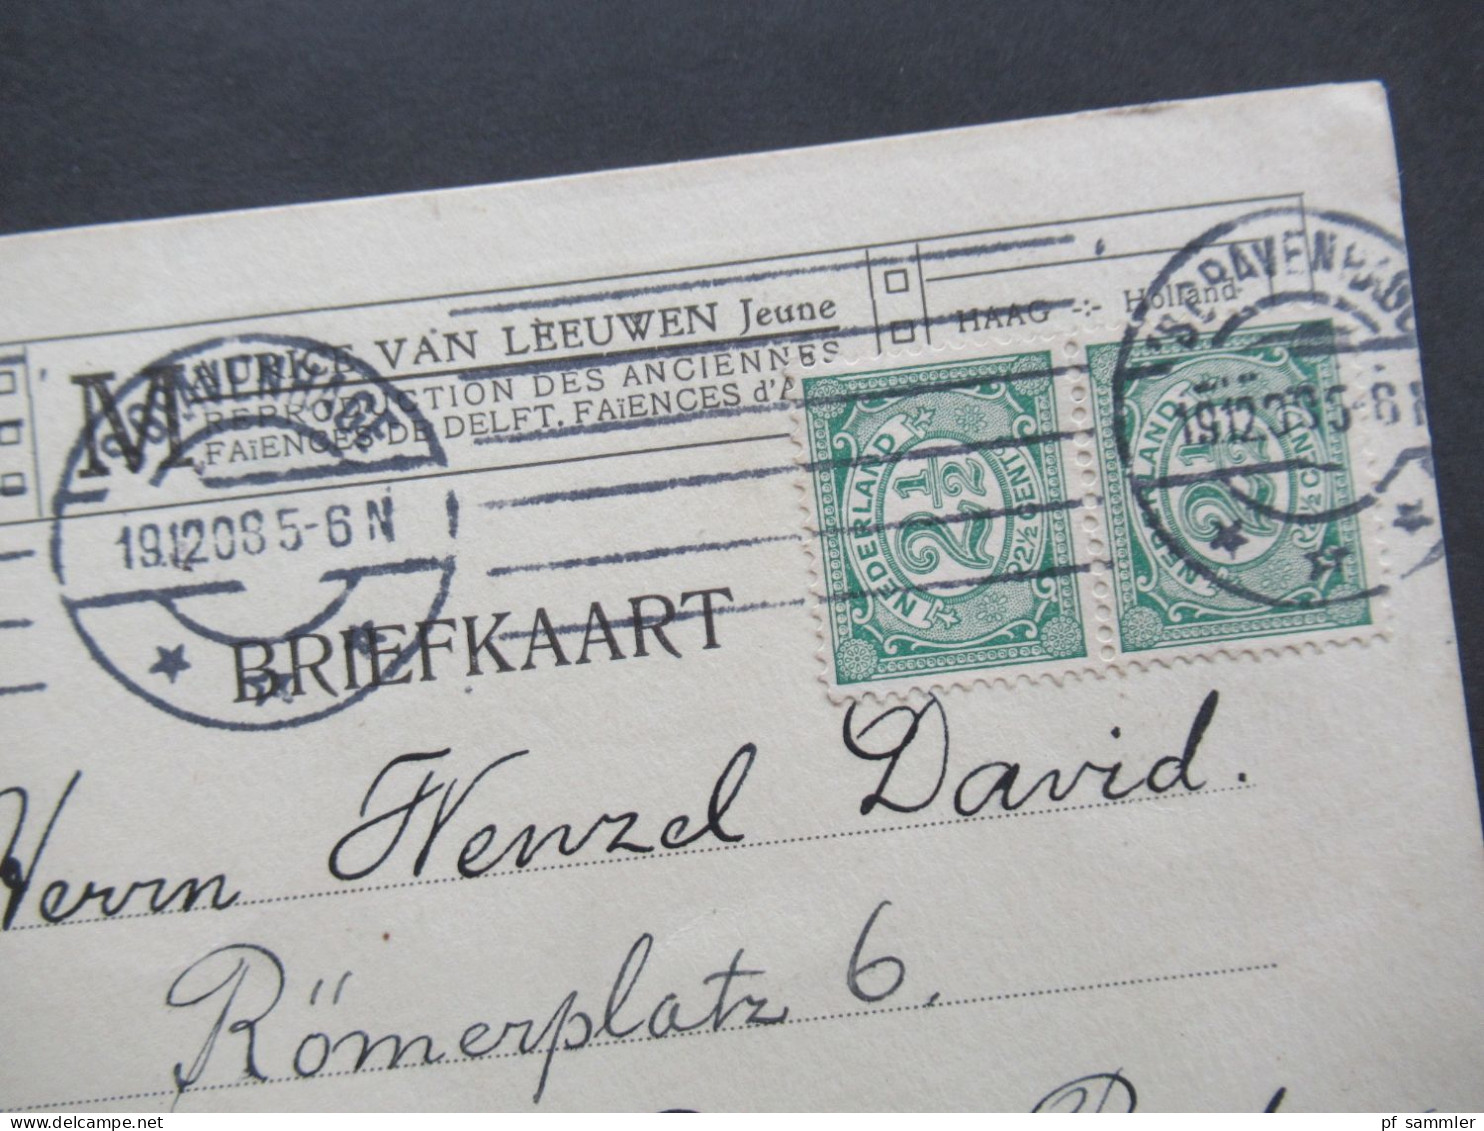 MAURICE VAN LEEUWEN Jeune
REPRODUCTION DES ANCIENNES
FAïENCES DE DELFT, FAïENCES d'A
HAAG -:- Holland
'S GRAVENHAGE
19.12.08 5-6 N
'S GRAVENHAGE
19.12.08 5-6 N
NEDERLAND
2 1/2
2½ CENT
NEDERLAND
2 1/2
2½ CENT
BRIEFKAART
Herrn Wenzel David.
Römerplatz 6.
pf_sammler